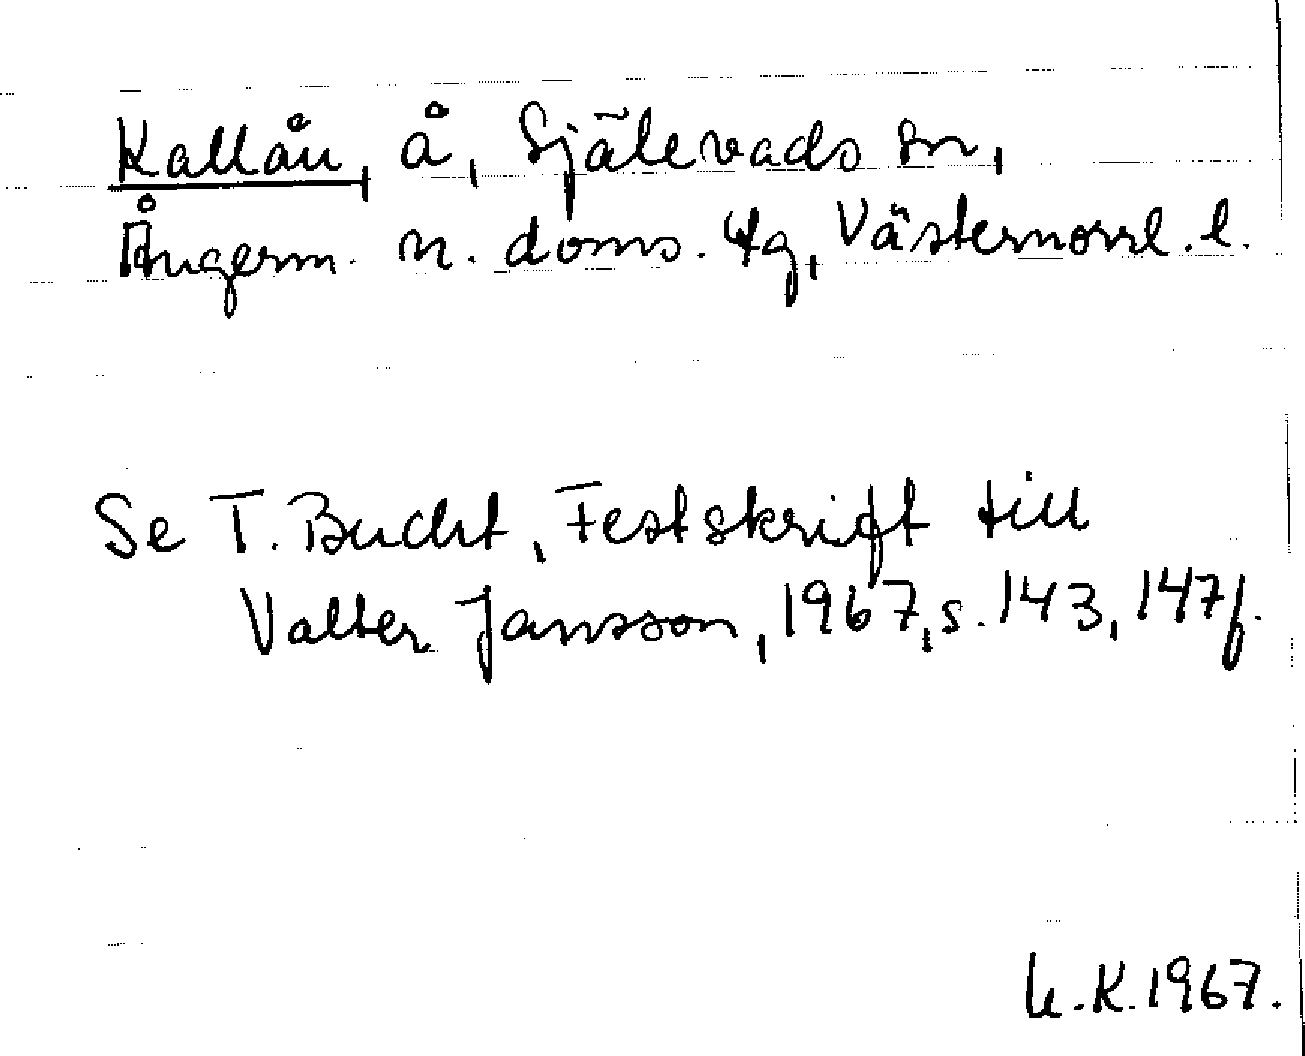 Kallån, å, Själevads sn,
Ångerm. n. doms. tg, Västernorrl. l.
Se T. Bucht, Festskrift till
Valter Jansson, 1967, s. 143, 147f.
K. 1967.